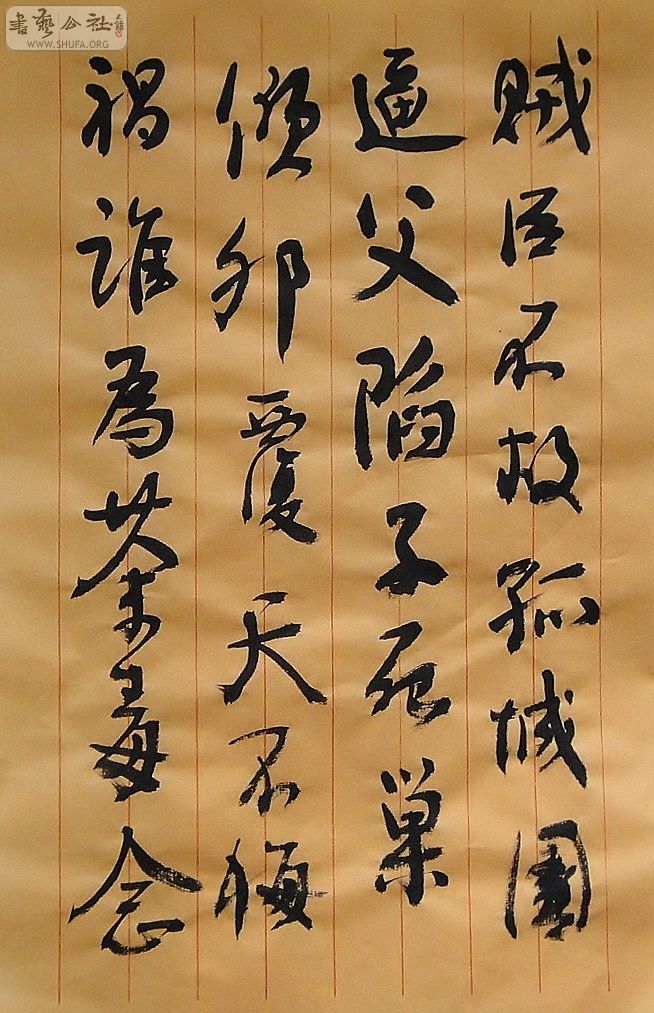 賊臣不救孤城圍
逼父陷子死巢
傾卵覆天不悔
禍誰為荼毒念
書藝公社
WWW.SHUFA.ORG